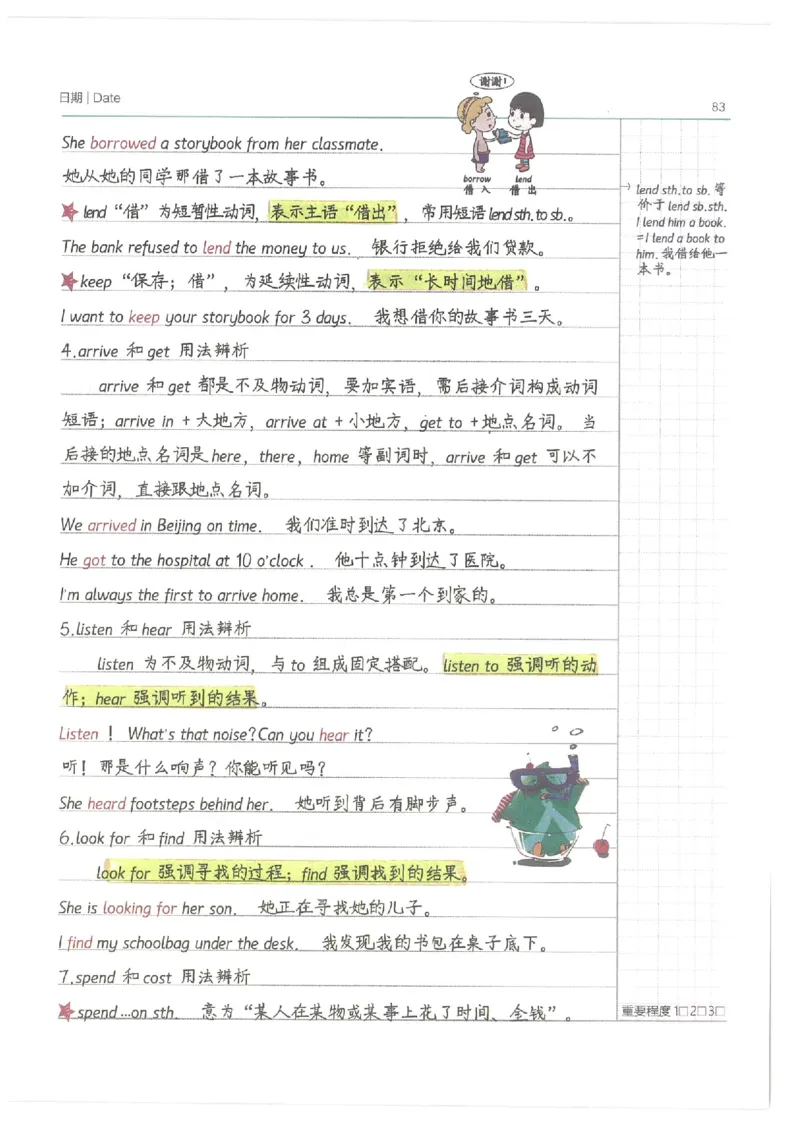 日期 | Date
83
谢谢！
borrow
借入
lend
借出
She borrowed a storybook from her classmate.
她从她的同学那借了一本故事书。
lend “借”为短暂性动词，表示主语“借出”，常用短语lend sth. to sb.。
The bank refused to lend the money to us. 银行拒绝给我们贷款。
keep “保存；借”，为延续性动词，表示“长时间地借”。
I want to keep your storybook for 3 days. 我想借你的故事书三天。
4.arrive 和 get 用法辨析
arrive 和 get 都是不及物动词，要加宾语，需后接介词构成动词
短语；arrive in +大地方，arrive at +小地方，get to +地点名词。当
后接的地点名词是 here，there，home 等副词时，arrive 和 get 可以不
加介词，直接跟地点名词。
We arrived in Beijing on time. 我们准时到达了北京。
He got to the hospital at 10 o'clock . 他十点钟到达了医院。
I'm always the first to arrive home. 我总是第一个到家的。
5.listen 和 hear 用法辨析
listen 为不及物动词，与 to 组成固定搭配。listen to 强调听的动
作；hear 强调听到的结果。
Listen ！ What's that noise?Can you hear it?
听！那是什么响声？你能听见吗？
She heard footsteps behind her. 她听到背后有脚步声。
6.look for 和 find 用法辨析
look for 强调寻找的过程；find 强调找到的结果。
She is looking for her son. 她正在寻找她的儿子。
I find my schoolbag under the desk. 我发现我的书包在桌子底下。
7.spend 和 cost 用法辨析
spend …on sth. 意为“某人在某物或某事上花了时间、金钱”。
lend sth. to sb. 等
价于 lend sb. sth.
I lend him a book.
=I lend a book to
him. 我借给他一
本书。
重要程度 1□ 2□ 3□